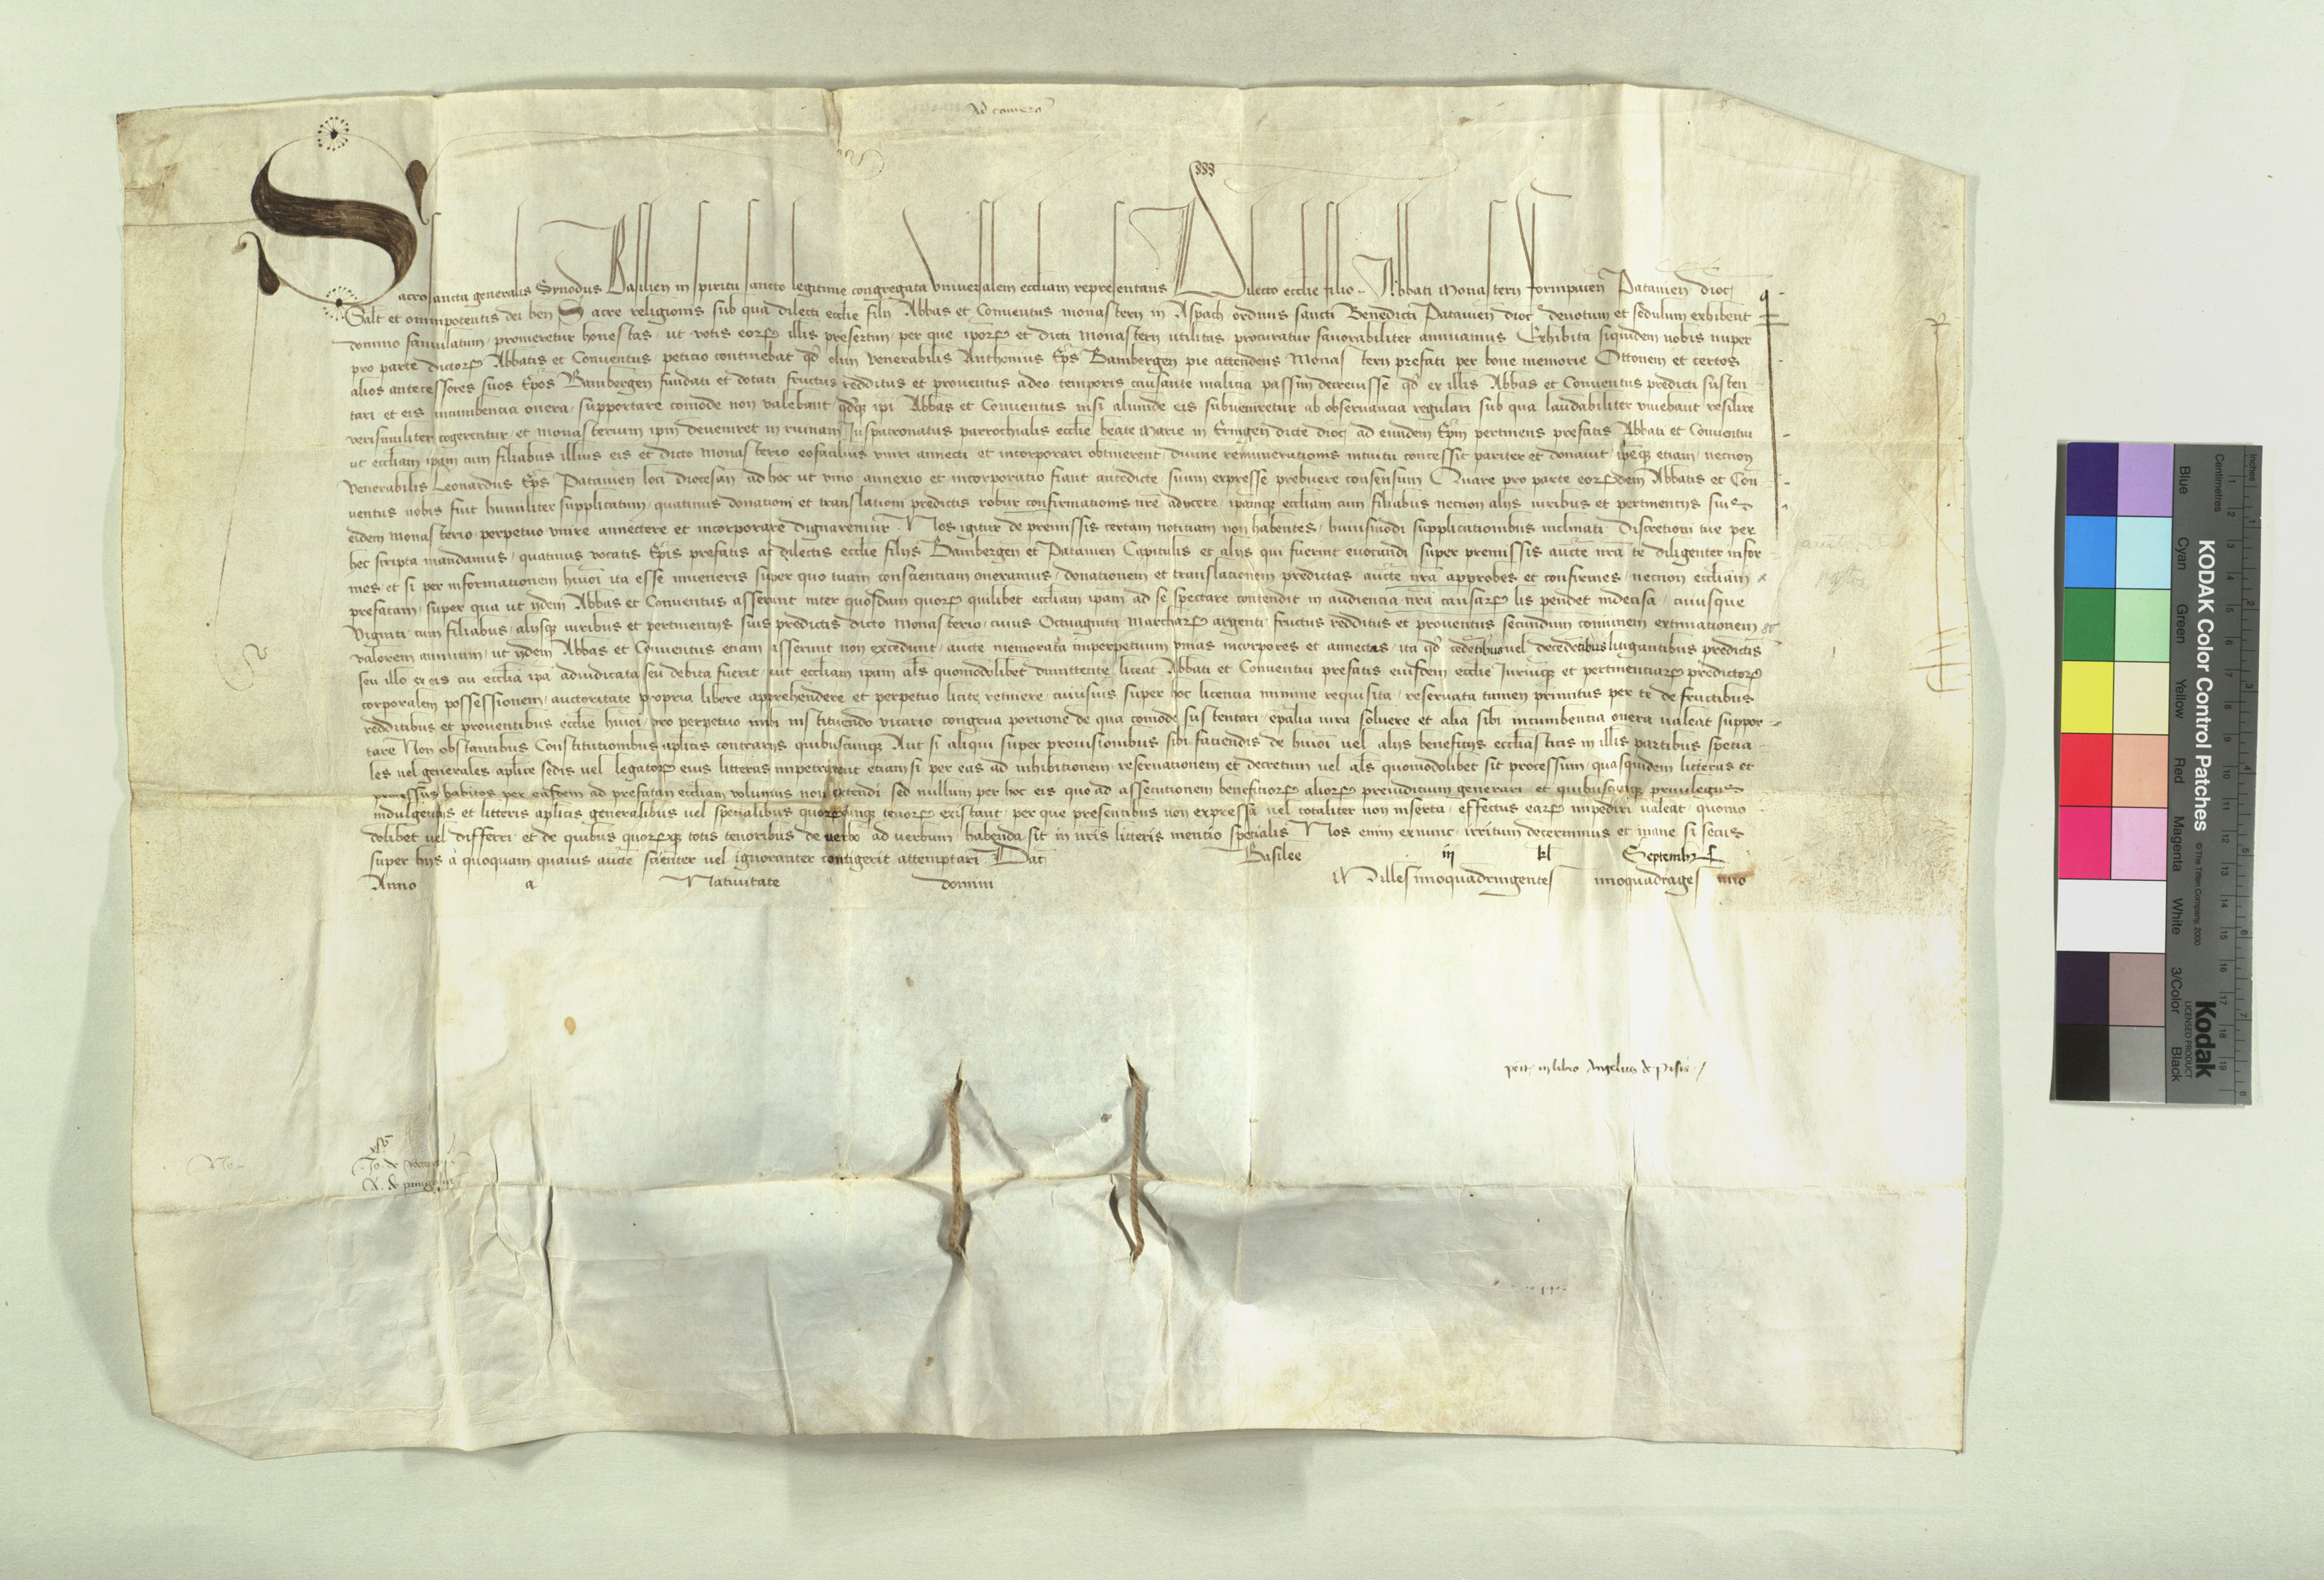 Ad camera
Sacrosancta generalis Synodus Basilien in spiritu sancto legitime congregata vniuersalem eccliam representans Dilecto ecclie filio Abbati Monasterij Formpacen Patauien dioc
Salt et omnipotentis dei ben Sacre religionis sub qua dilecti ecclie filij Abbas et Conuentus monasterij in Aspach ordinis sancti Benedicti Patauien dioc deuotum et sedulum exhibent
domino famulatum promeretur honestas ut votis eorum illis presertim per que iporum et dicti Monasterij utilitas procuratur fauorabiliter annuamus Exhibita siquidem nobis nuper
pro parte dictorum Abbatis et Conuentus peticio continebat qd olim venerabilis Anthonius Eps Bambergen pie attendens Monasterij prefati per bone memorie Ottonem et certos
alios antecessores suos Epos Bambergen fundati et dotati fructus redditus et prouentus adeo temporis causante malicia passim decreuisse qd ex illis Abbas et Conuentus predicti susten
tari et eis incumbencia onera supportare comode non valebant qdq ipi Abbas et Conuentus nisi aliunde eis subueniretur ab obseruantia regulari sub qua laudabiliter viuebant resilire
verisimiliter cogerentur et monasterium ipm deueniret in ruinam Juspatronatus parrochialis ecclie beate Marie in Eringen dicte dioc ad eundem Epm pertinens prefatis Abbati et Conuentui
ut eccliam ipam cum filiabus illius eis et dicto Monasterio eofacilius vniri annecti et incorporari obtinerent diuine remunerationis intuitu concessit pariter et donauit ipeq etiam necnon
venerabilis Leonardus Eps Patauien loci diocesan ad hoc ut vnio annexio et incorporatio fiant antedicte suum expresse prebuere consensum Quare pro parte eorumdem Abbatis et Con
uentus nobis fuit humiliter supplicatum quatinus donationi et translationi predictis robur confirmationis nre adijcere ipamq eccliam cum filiabus necnon alijs iuribus et pertinentijs suis
eidem Monasterio perpetuo vnire annectere et incorporare dignaremur Nos igitur de premissis certam notitiam non habentes huiusmodi supplicationibus inclinati discretioni tue per
hec scripta mandamus quatinus vocatis Epis prefatis ac dilectis ecclie filijs Bambergen et Patauien Capitulis et alijs qui fuerint euocandi super premissis aucte nra te diligenter infor
mes et si per informationem hmoi ita esse inueneris super quo tuam conscienciam oneramus donationem et translationem predictas aucte nra approbes et confirmes necnon eccliam
prefatam super qua ut ijdem Abbas et Conuentus asserunt inter quosdam quorum quilibet eccliam ipam ad se spectare contendit in audiencia nra causarum lis pendet indecisa cuiusque
Viginti cum filiabus alijsq iuribus et pertinentijs suis predictis dicto Monasterio cuius Octuaginta Marcharum argenti fructus redditus et prouentus secundum comunem extimationem
valorem annuum ut ijdem Abbas et Conuentus etiam asserunt non excedunt aucte memorata imperpetuum vnias incorpores et annectas ita qd cedetibus uel decedetibus litigantibus predictis
seu illo ex eis cui ecclia ipa adiudicata seu debita fuerit aut eccliam ipam als quomodolibet dimittente liceat Abbati et Conuentui prefatis eiusdem ecclie Juriumq et pertinentiarum predictorum
corporalem possessionem auctoritate propria libere apprehendere et perpetuo licite retinere cuiusuis super hoc licencia minime requisita reseruata tamen primitus per te de fructibus
redditibus et prouentibus ecclie hmoi pro perpetuo inibi instituendo vicario congrua portione de qua comode sustentari epalia iura soluere et alia sibi incumbentia onera ualeat suppor
tare Non obstantibus Constitutionibus aplicis contrarijs quibuscunq Aut si aliqui super prouisionibus sibi faciendis de hmoi uel alijs beneficijs ecclesiasticis in illis partibus specia
les uel generales aplice sedis uel legatorum eius litteras impetrarint etiam si per eas ad inhibitionem reseruationem et decretum uel als quomodolibet sit processum quasquidem litteras et
processus habitos per easdem ad prefatam eccliam volumus non extendi sed nullum per hoc eis quo ad assecutionem beneficiorum aliorum preiudicium generari et quibuscunq priuilegijs
indulgentijs et litteris aplicis generalibus uel specialibus quorumcunq tenorum existant per que presentibus non expressa uel totaliter non inserta effectus earum impediri ualeat quomo
dolibet uel differri et de quibus quorumq totis tenoribus de uerbo ad verbum habenda sit in nris litteris mentio specialis Nos enim exnunc irritum decernimus et inane si secus
super hijs a quoquam quauis aucte scienter uel ignoranter contigerit attemptari Dat Basilee iij kl Septembr
Anno a Natiuitate domini Millesimoquadringentesimoquadragesimo
pnt in libro Angelus de Pisis
Jo. de
KODAK Color Control Patches
© The Tiffen Company, 2000
Kodak
LICENSED PRODUCT
Blue Cyan Green Yellow Red Magenta White 3/Color Black
Inches 1 2 3 4 5 6 7 8
Centimetres 1 2 3 4 5 6 7 8 9 10 11 12 13 14 15 16 17 18 19